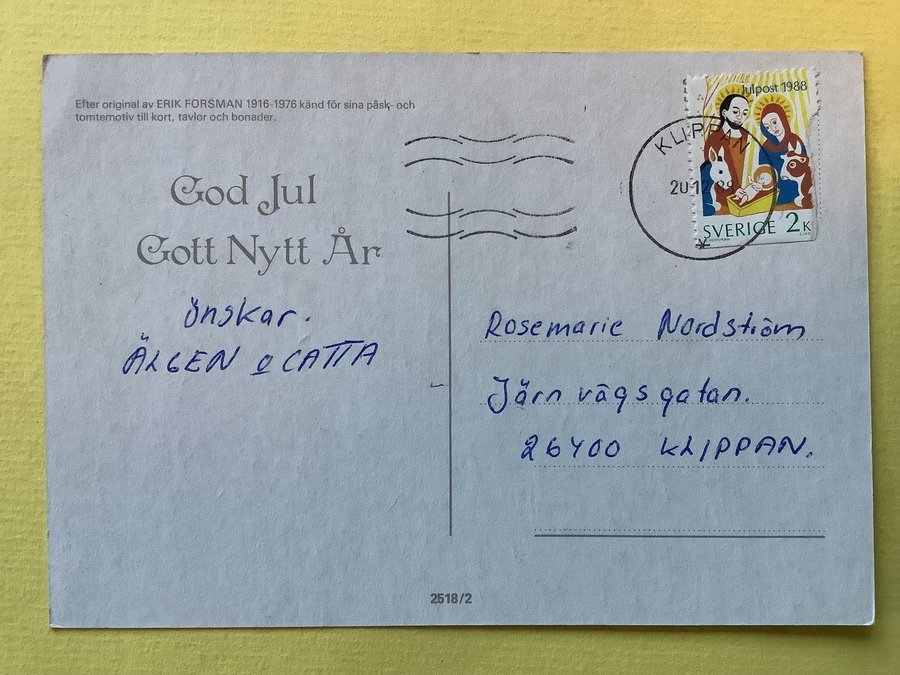 Efter original av ERIK FORSMAN 1916-1976 känd för sina påsk- och
tomtemotiv till kort, tavlor och bonader.
God Jul
Gott Nytt År
önskar.
ÄLGEN o CATTA
Julpost 1988
SVERIGE 2K
KLIPPAN
20.12.88
Rosemarie Nordström
Järnvägsgatan.
26400 KLIPPAN.
2518/2